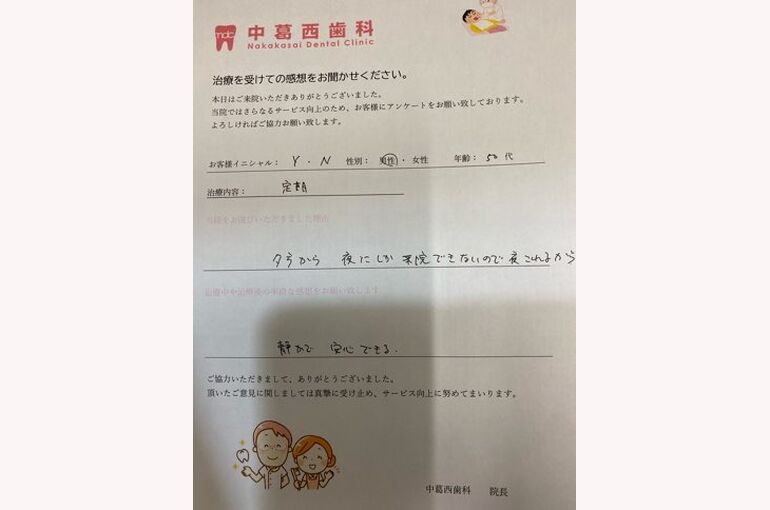 ndc 中葛西歯科
Nakakasai Dental Clinic
治療を受けての感想をお聞かせください。
本日はご来院いただきありがとうございました。
当院ではさらなるサービス向上のため、お客様にアンケートをお願い致しております。
よろしければご協力お願い致します。
お客様イニシャル： Y ・ N 性別： 男性 ・ 女性 年齢： 50 代
治療内容： 定期
当院をお選びいただきました理由
夕方から 夜にしか 来院できないので 夜これるから
治療中や治療後の率直な感想をお願い致します
静かで 安心できる.
ご協力いただきまして、ありがとうございました。
頂いたご意見に関しましては真摯に受け止め、サービス向上に努めてまいります。
中葛西歯科 院長